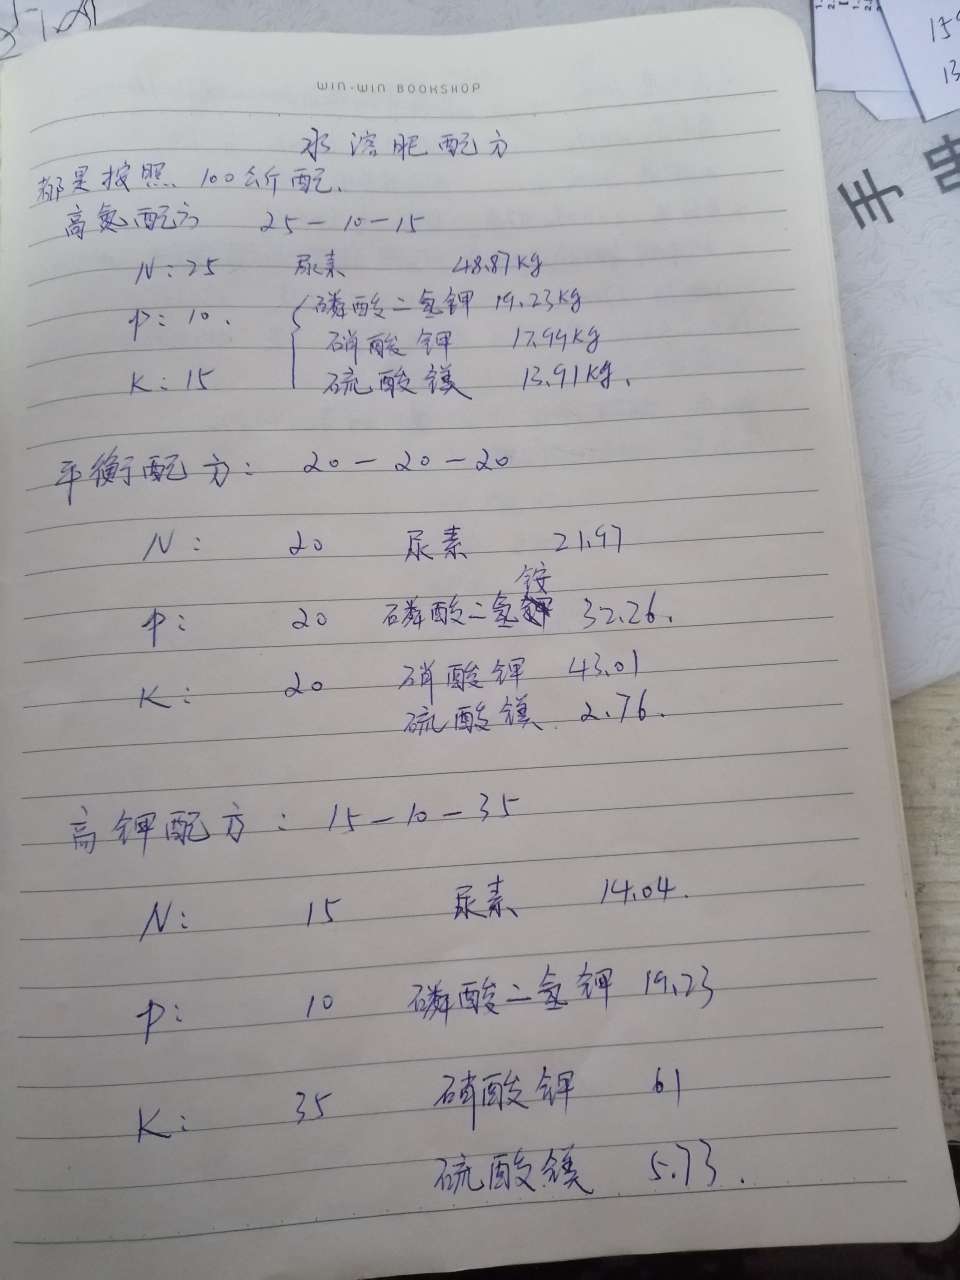 WIN·WIN BOOKSHOP
水溶肥配方
都是按照 100公斤配.
高氮配方 25-10-15
N:25 尿素 48.87kg
P:10. 磷酸二氢钾 19.23kg
硝酸钾 17.99kg
K:15 硫酸镁 13.91kg.
平衡配方: 20-20-20
N: 20 尿素 21.97
铵
P: 20 磷酸二氢 32.26.
K: 20 硝酸钾 43.01
硫酸镁 2.76.
高钾配方: 15-10-35
N: 15 尿素 14.04.
P: 10 磷酸二氢钾 19.23
K: 35 硝酸钾 61
硫酸镁 5.73.
手
159
13